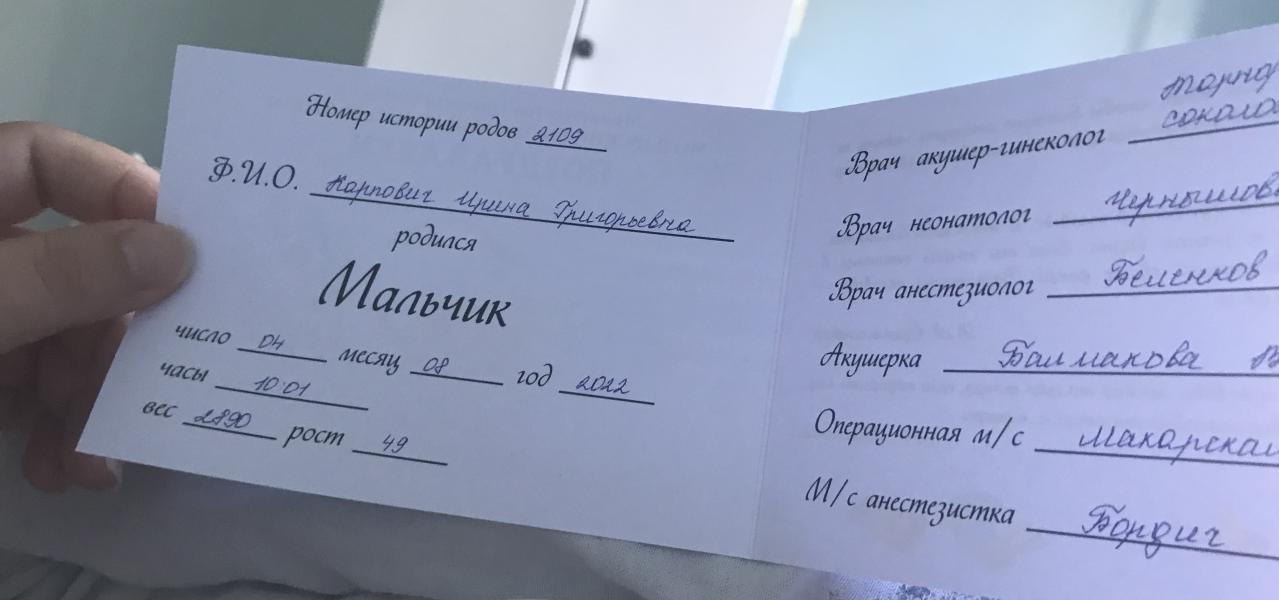 Номер истории родов 2109
Ф.И.О. Карпович Ирина Григорьевна
родился
Мальчик
число 04 месяц 08 год 2022
часы 10:01
вес 2890 рост 49
Врач акушер-гинеколог
Врач неонатолог
Врач анестезиолог Беленков
Акушерка Балмакова
Операционная м/с
М/с анестезистка Бондич